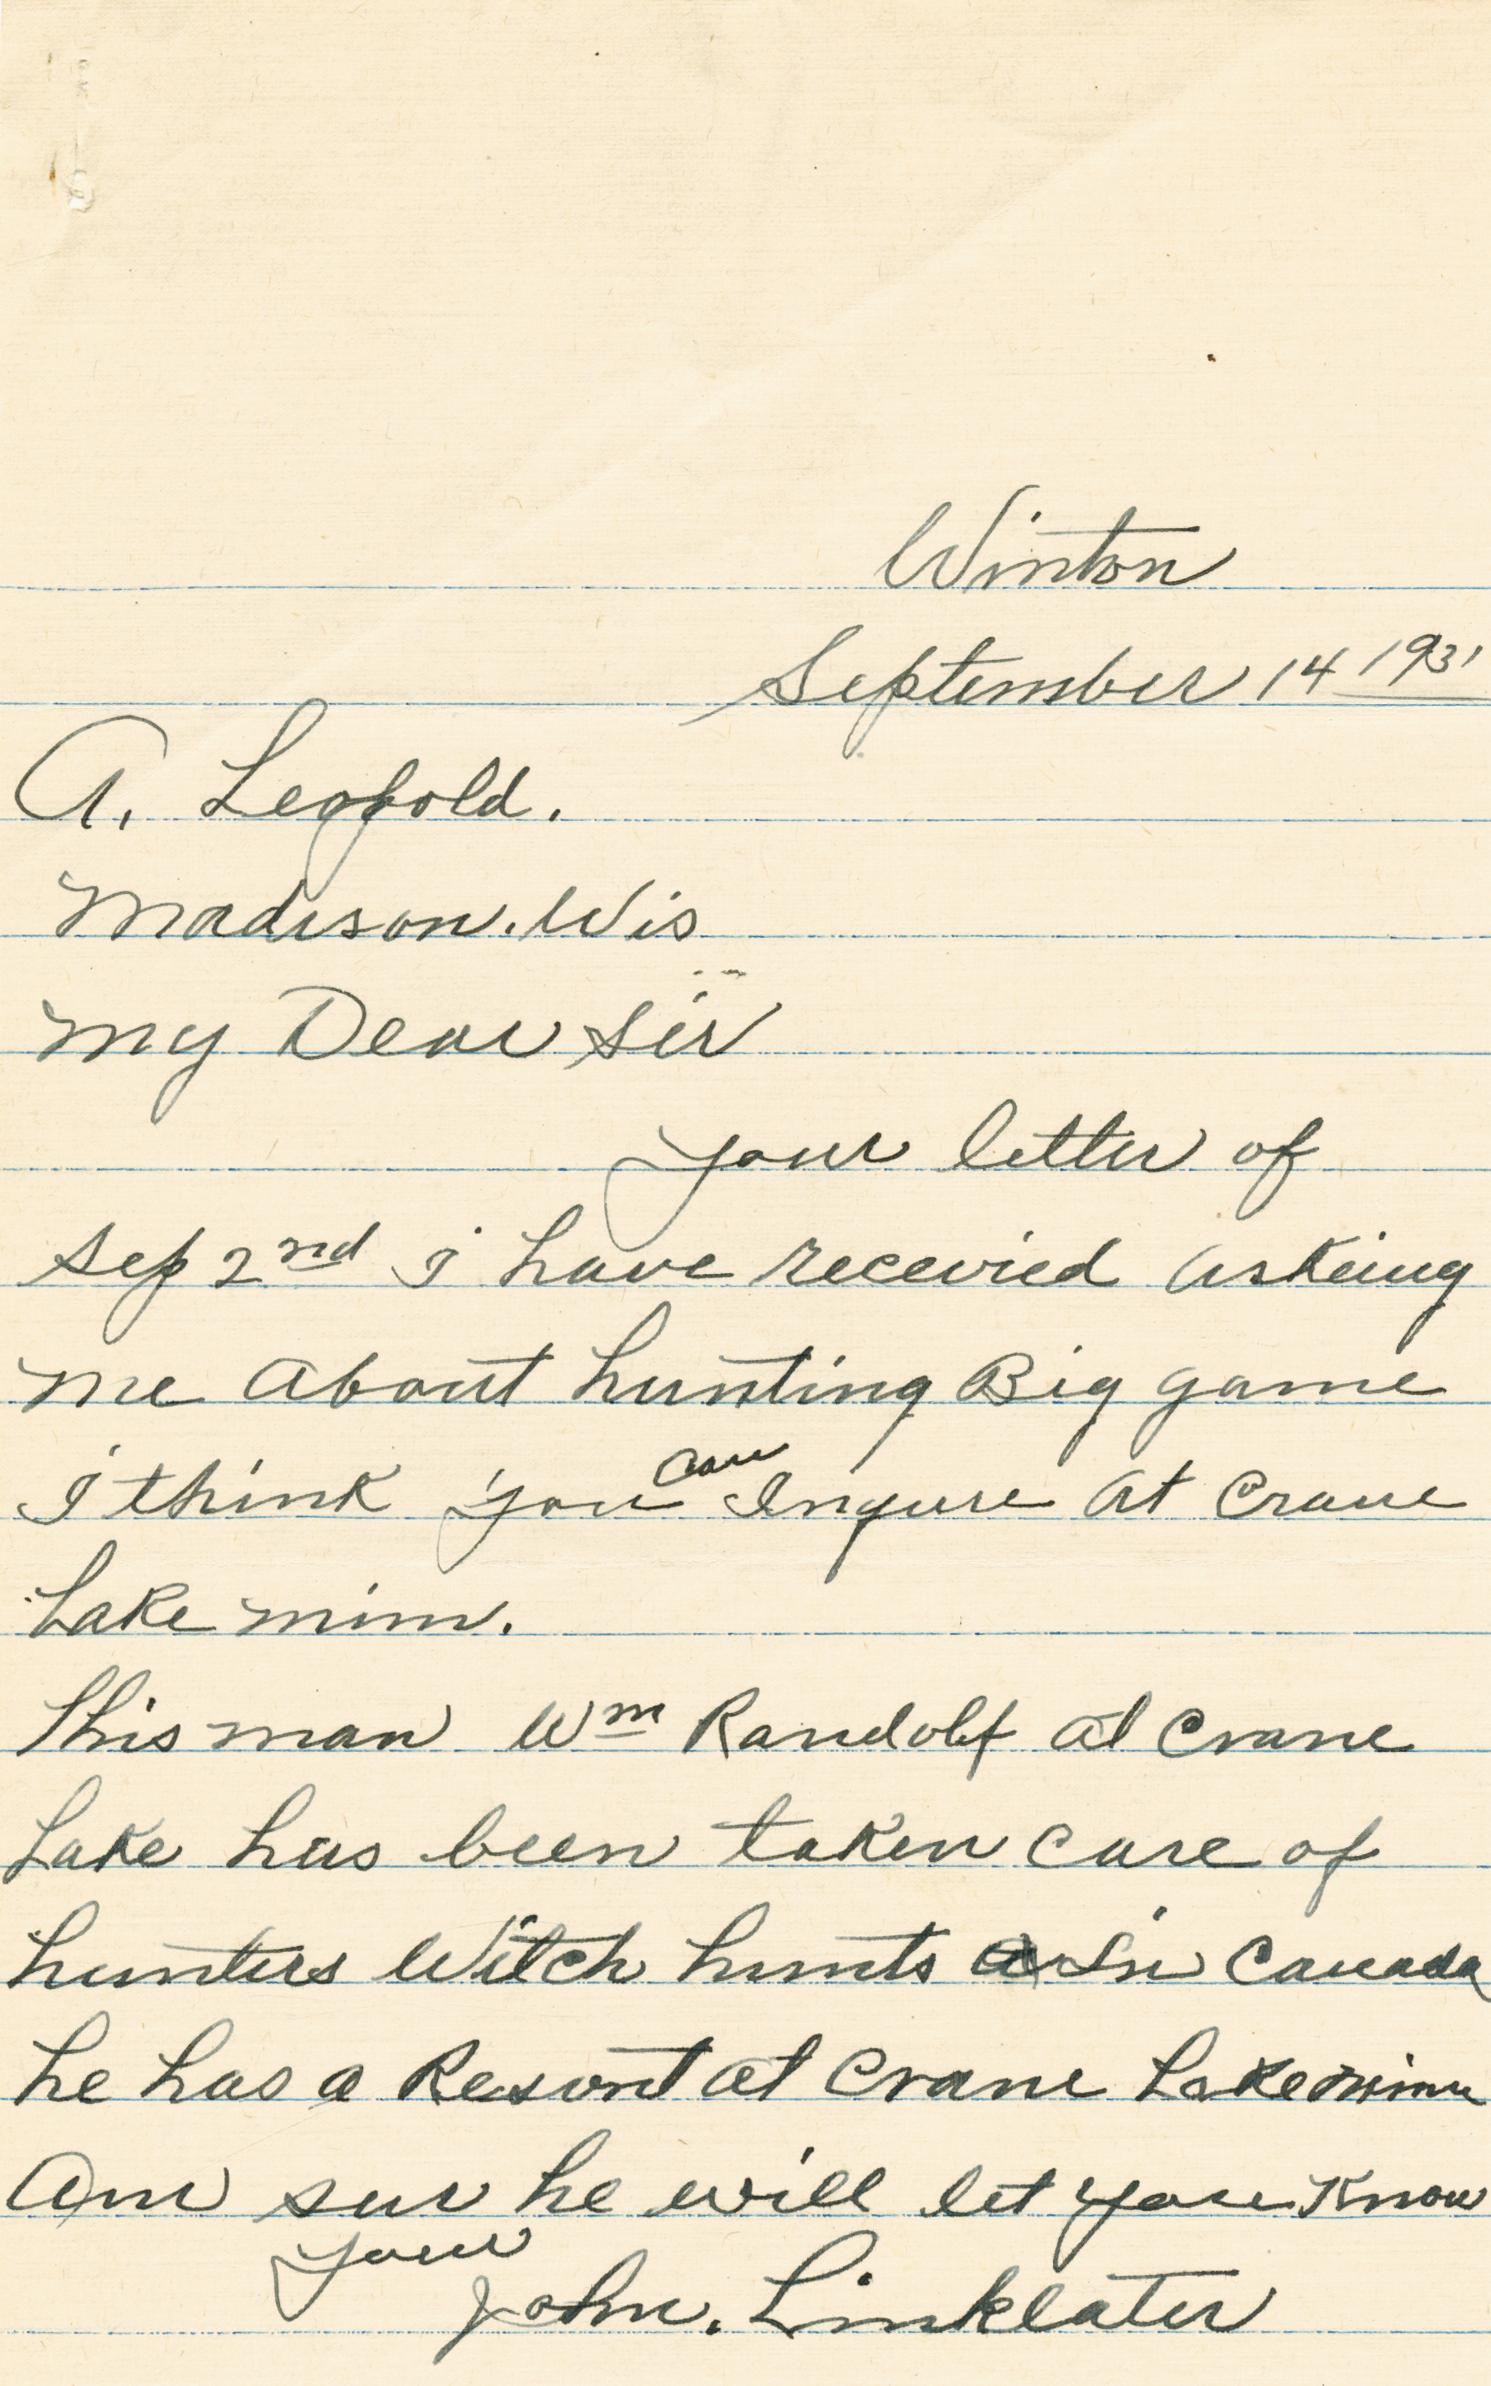 Winton
September 14 1931
A. Leopold.
Madison. Wis
My Dear Sir
your letter of
Sep 2nd I have recevied Askeing
me About hunting Big game
I think you can Inqure At Crane
Lake Minn.
This man Wm Randolf at Crane
Lake has been taken care of
hunters Witch hunts In Canada
he has a Resort at Crane Lake minn
Am sur he will let you Know
your
John. Linklater